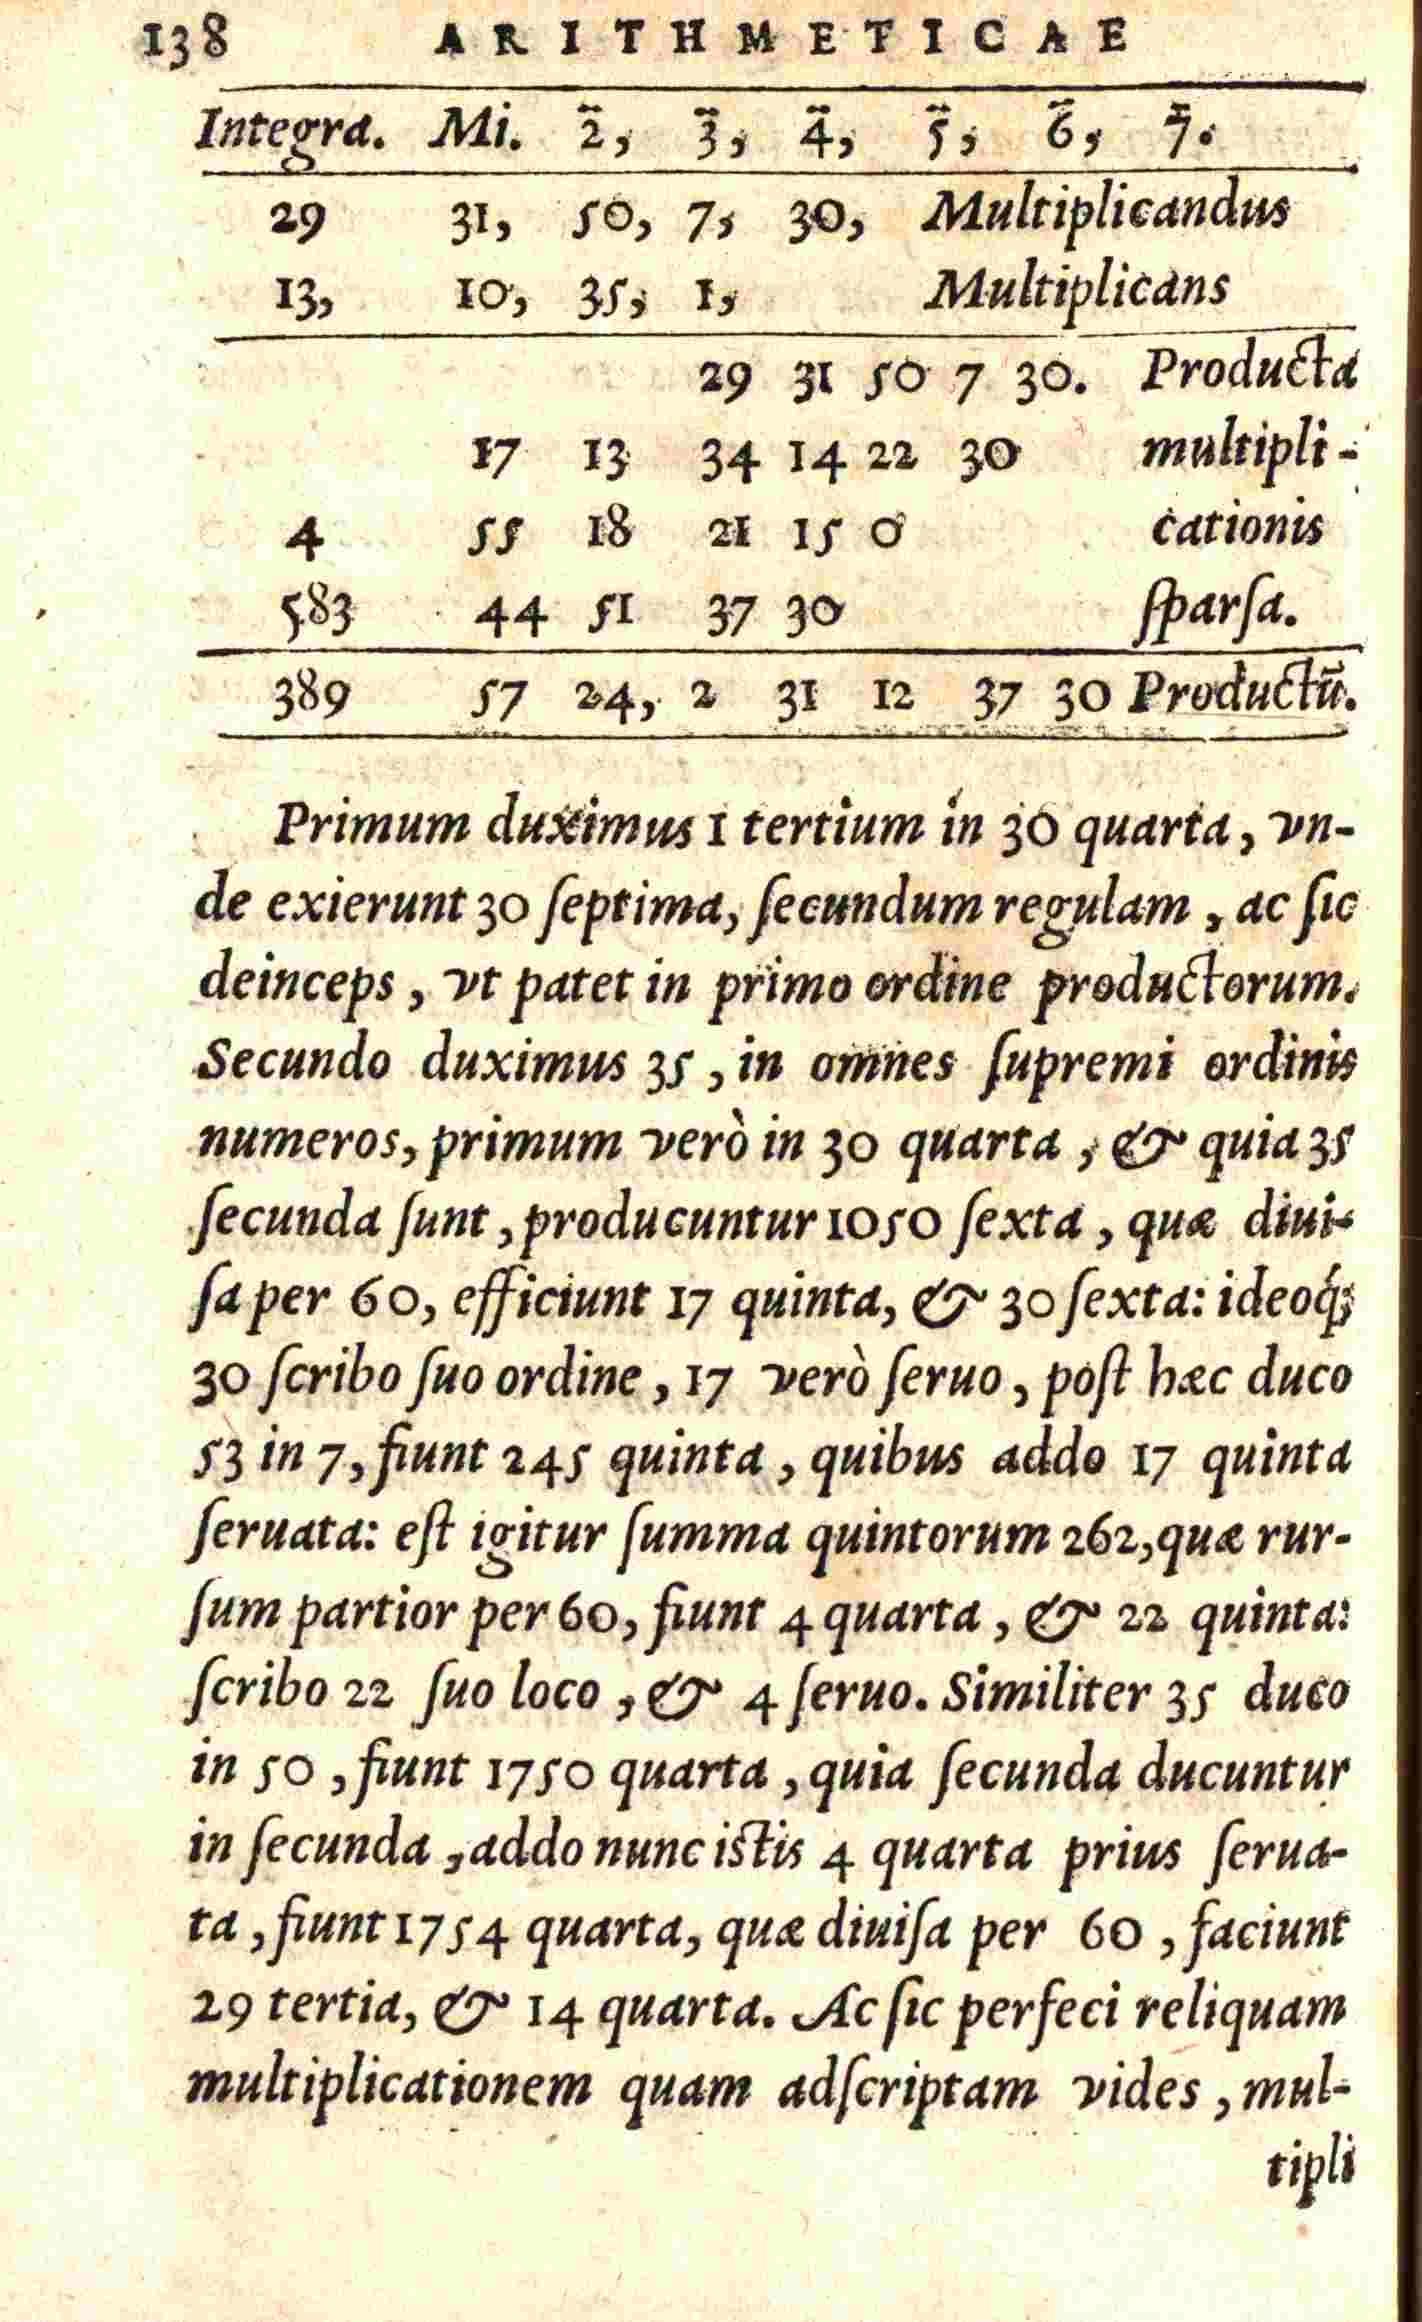 138 ARITHMETICAE
Integra. Mi. 2̈, 3̈, 4̈, 5̈, 6̈, 7̈.
29 31, 50, 7, 30, Multiplicandus
13, 10, 35, 1, Multiplicans
29 31 50 7 30. Producta
17 13 34 14 22 30 multipli-
4 55 18 21 15 0 cationis
583 44 51 37 30 ſparſa.
389 57 24, 2 31 12 37 30 Productũ.
Primum duximus 1 tertium in 30 quarta, vn-
de exierunt 30 ſeptima, ſecundum regulam, ac ſic
deinceps, vt patet in primo ordine productorum.
Secundo duximus 35, in omnes ſupremi ordinis
numeros, primum verò in 30 quarta, & quia 35
ſecunda ſunt, producuntur 1050 ſexta, quæ diui-
ſa per 60, efficiunt 17 quinta, & 30 ſexta: ideoq́;
30 ſcribo ſuo ordine, 17 verò ſeruo, poſt hæc duco
53 in 7, fiunt 245 quinta, quibus addo 17 quinta
ſeruata: eſt igitur ſumma quintorum 262, quæ rur-
ſum partior per 60, fiunt 4 quarta, & 22 quinta:
ſcribo 22 ſuo loco, & 4 ſeruo. Similiter 35 duco
in 50, fiunt 1750 quarta, quia ſecunda ducuntur
in ſecunda, addo nunc iſtis 4 quarta prius ſerua-
ta, fiunt 1754 quarta, quæ diuiſa per 60, faciunt
29 tertia, & 14 quarta. Ac ſic perfeci reliquam
multiplicationem quam adſcriptam vides, mul-
tipli